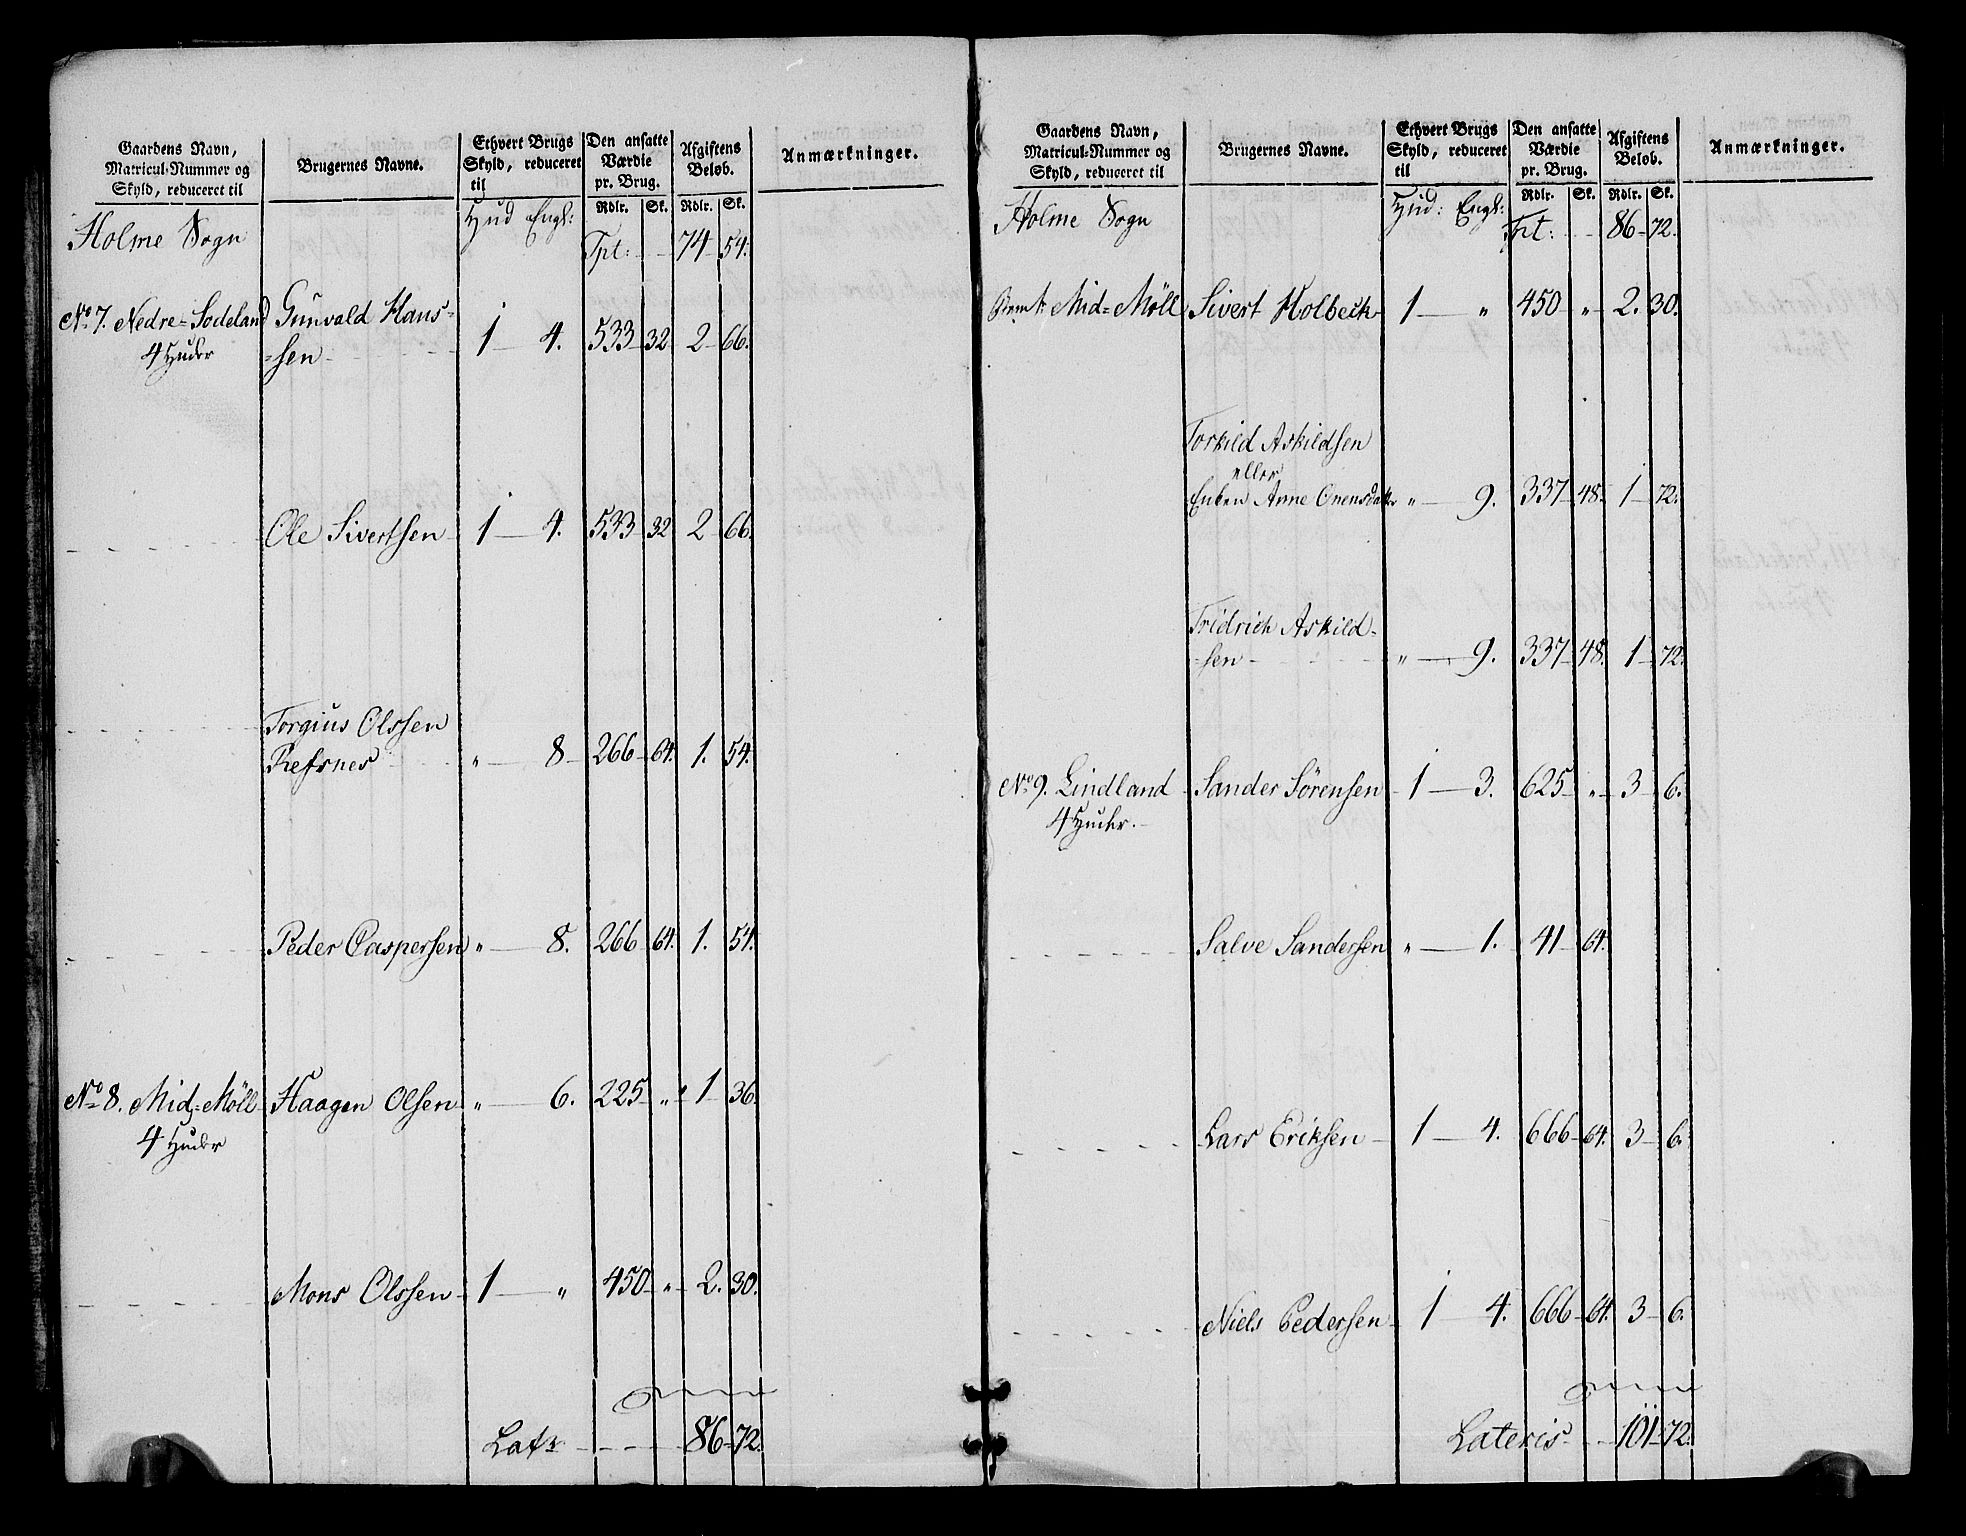 Gaardens Navn, Matricul-Nummer og Skyld, reduceret til | Brugernes Navne. | Ethvert Brugs Skyld, reduceret til | Den ansatte Værdie pr. Brug. | Afgiftens Beløb. | Anmærkninger.
Hud Engl: | Rdlr. | Sk. | Rdlr. | Sk.
Holme Sogn | Tpt: | 74 | 54.
No 7. Nedre=Sodeland | Gunvald Hans=
4 Huder | =sen | 1 — 4. | 533 | 32 | 2 | 66.
Ole Sivertsen | 1 — 4. | 533 | 32 | 2 | 66.
Torgius Olssen
Refsnes | " — 8 | 266 | 64. | 1. | 54.
Peder Caspersen | " — 8. | 266 | 64. | 1. | 54.
No 8. Mid=Möll | Haagen Olsen | " — 6. | 225 | " | 1 | 36.
4 Huder
Mons Olssen | 1 — " | 450 | " | 2. | 30.
Lat | 86 | 72.
Gaardens Navn, Matricul-Nummer og Skyld, reduceret til | Brugernes Navne. | Ethvert Brugs Skyld, reduceret til | Den ansatte Værdie pr. Brug. | Afgiftens Beløb. | Anmærkninger.
Hud: Engl: | Rdlr. | Sk. | Rdlr. | Sk.
Holme Sogn | Tpt: | 86 | 72.
Mid=Möll | Sivert Holbeck | 1 — " | 450 | " | 2. | 30.
Torkild Askildsen
eller
Enken Anne Onensdatter | " — 9. | 337 | 48. | 1 | 72.
Fridrich Askild=
=sen | " — 9. | 337 | 48. | 1 | 72.
No 9. Lindland | Sander Sørensen | 1 — 3. | 625 | " | 3 | 6.
4 Huder.
Salve Sandersen | " — 1. | 41 | 64.
Lars Eriksen | 1 — 4. | 666 | 64. | 3 | 6.
Niels Pedersen | 1 — 4. | 666 | 64. | 3 | 6.
Lateris | 101 | 72.